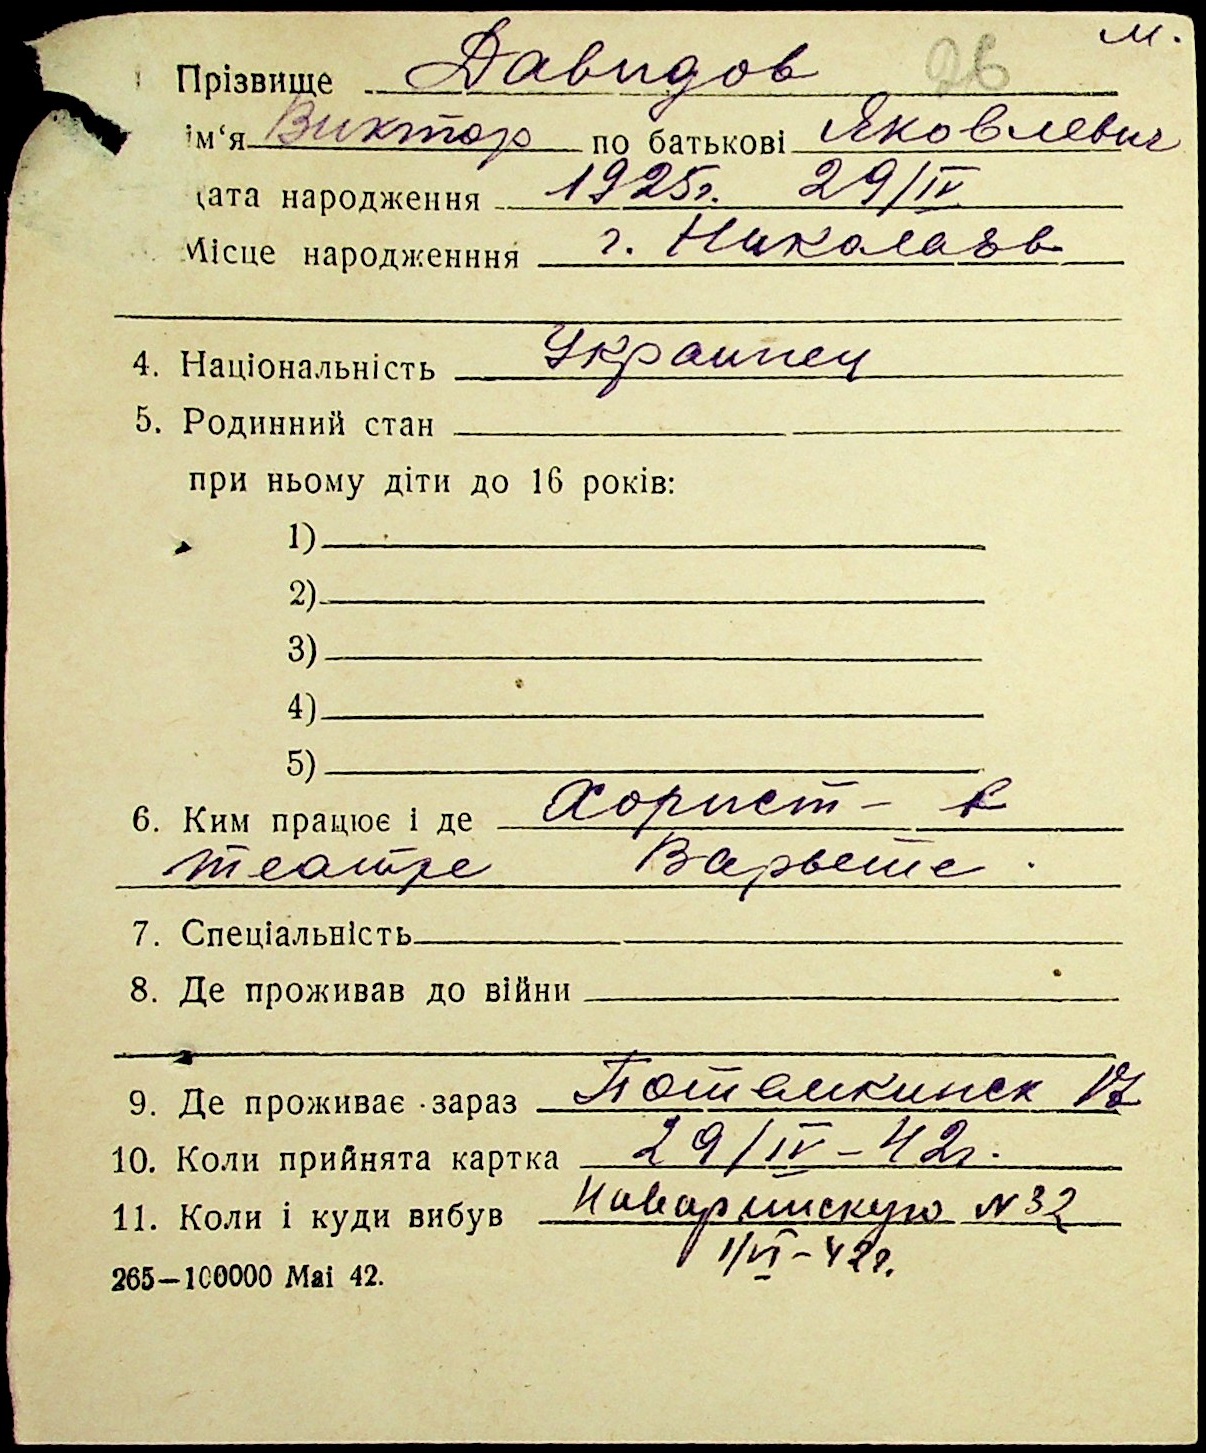 м.
Прізвище Давидов 26
ім‘я Виктор по батькові Яковлевич
дата народження 1925г. 29/IV
Місце народженння г. Николаев
4. Національність Украинец
5. Родинний стан
при ньому діти до 16 років:
1)
2)
3)
4)
5)
6. Ким працює і де Хорист – в
театре Варьете.
7. Спеціальність
8. Де проживав до війни
9. Де проживає зараз Потемкинск 17
10. Коли прийнята картка 29/IV – 42г.
11. Коли і куди вибув Наваринскую №32
1/VI – 42г.
265—100000 Mai 42.